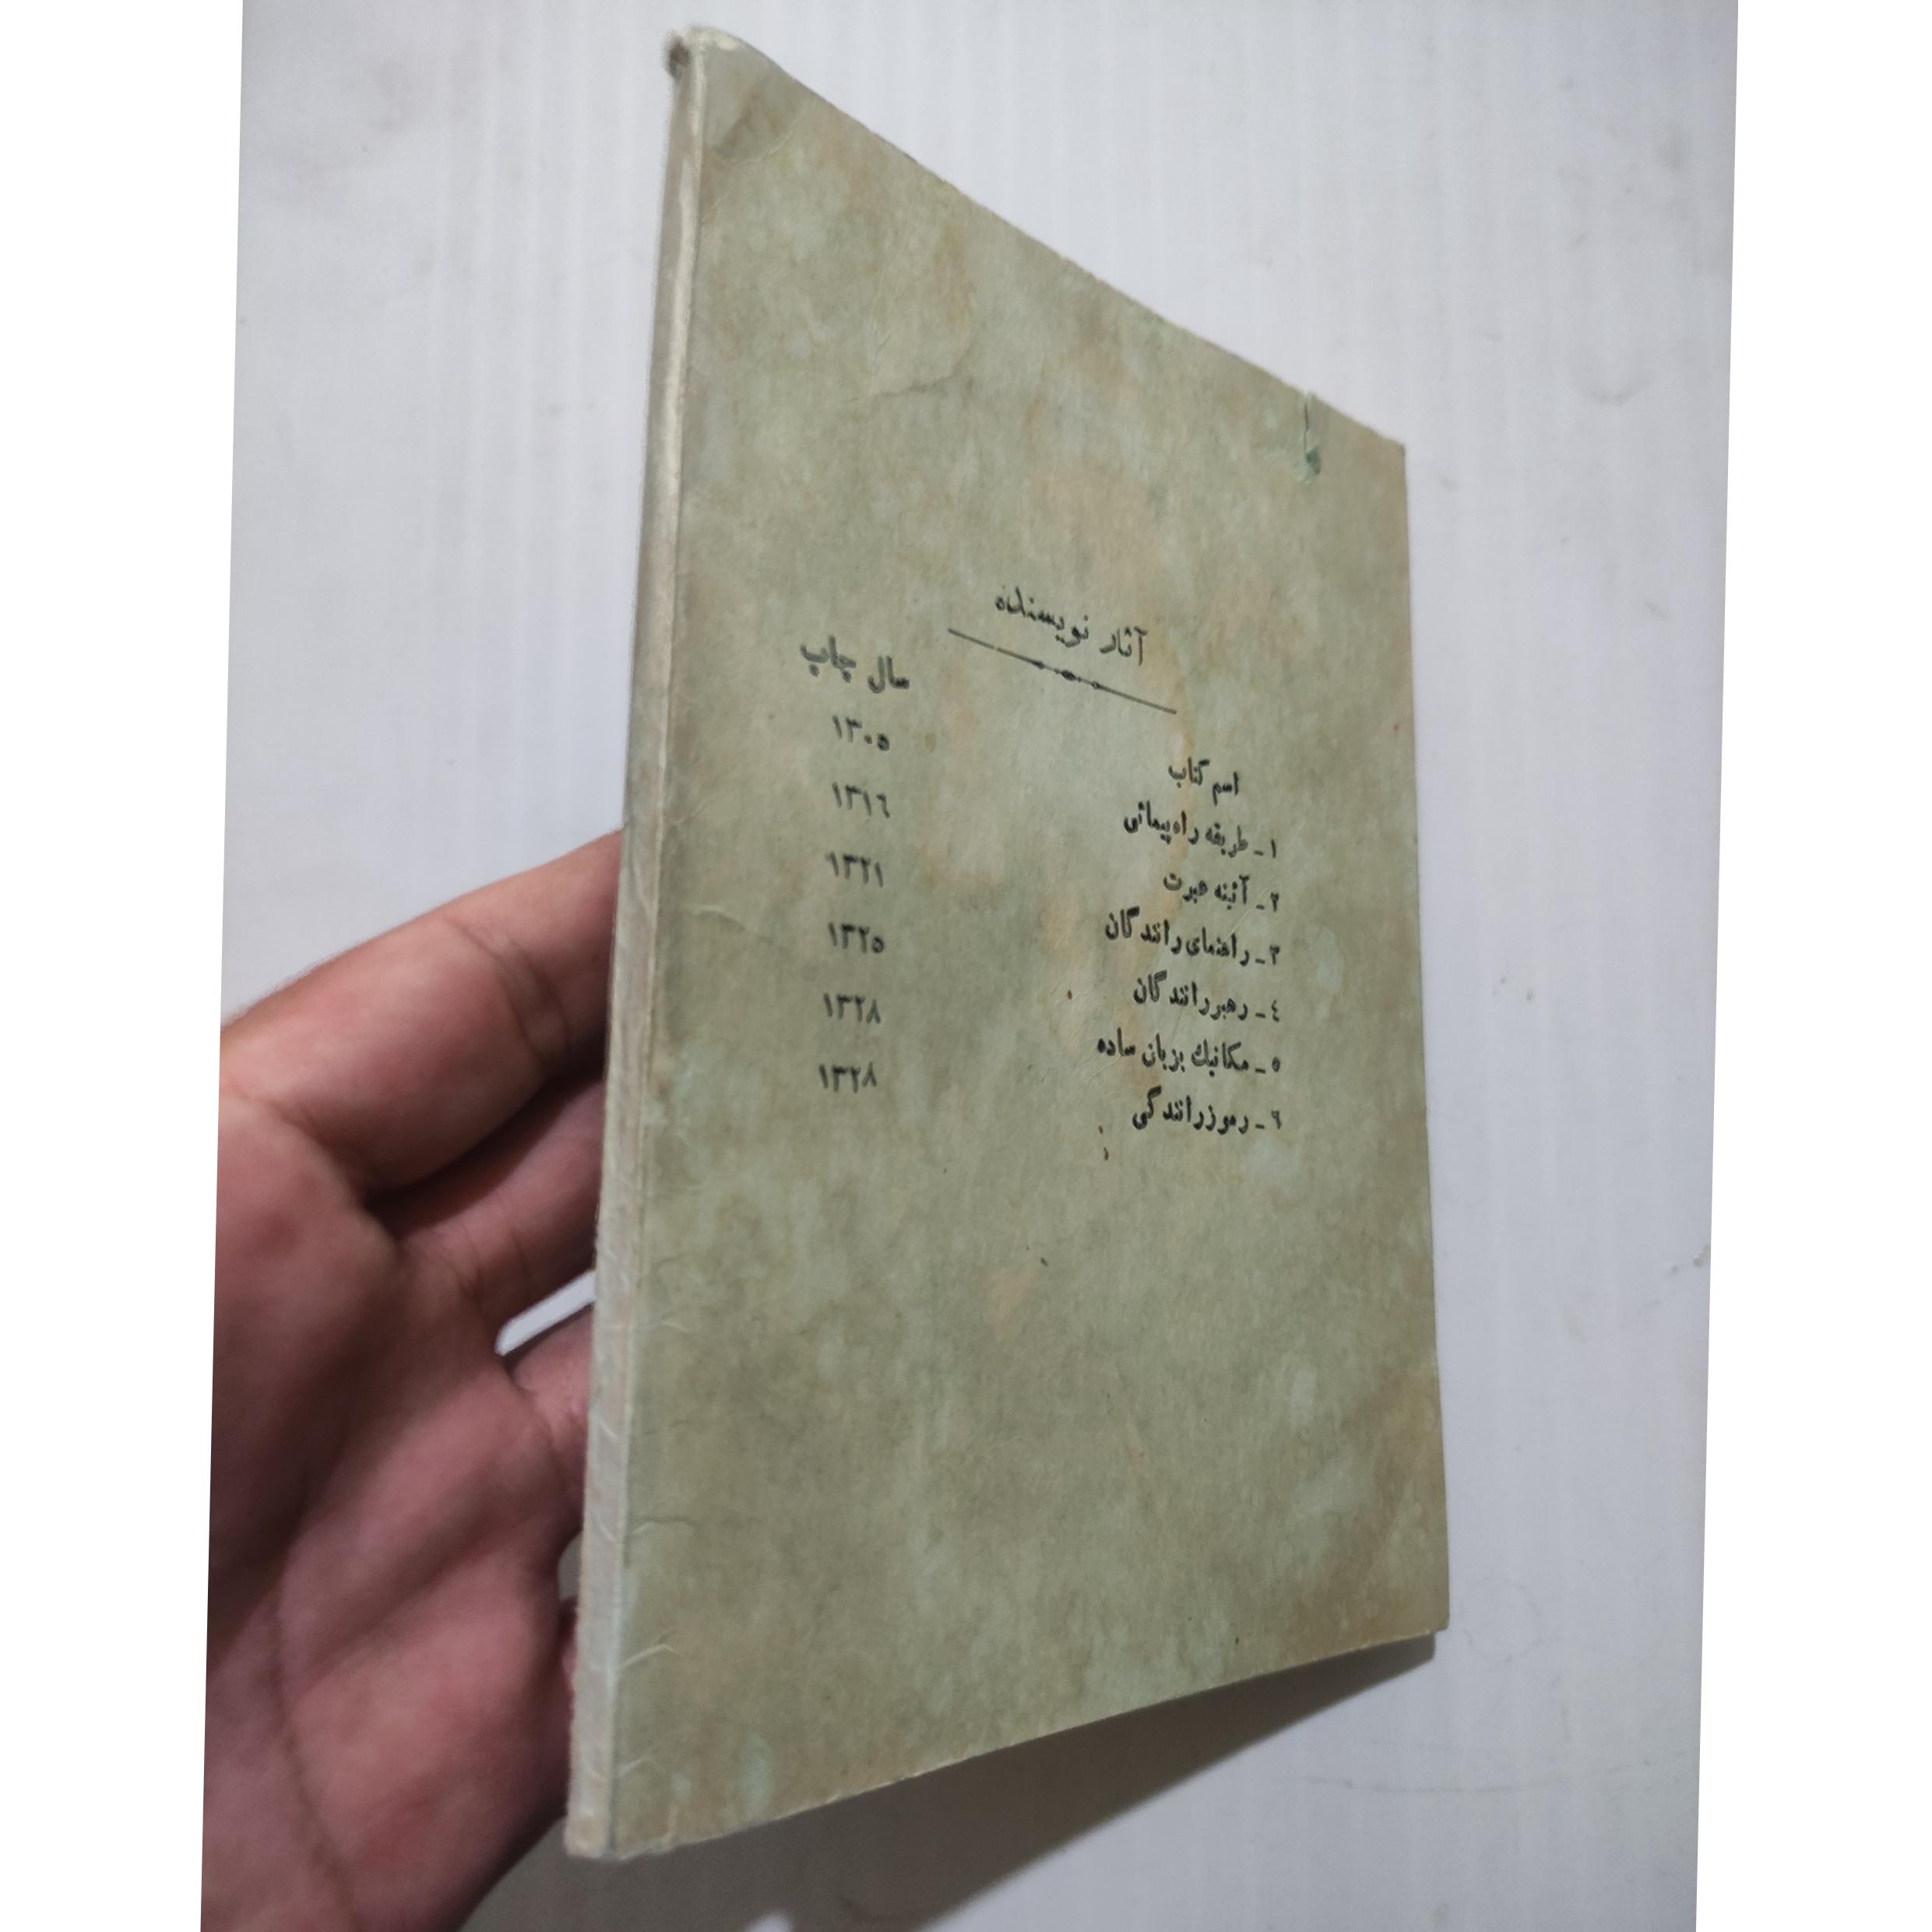 آثار نویسنده
اسم کتاب سال چاپ
۱ـ طریقه راه‌پیمائی ۱۳۰۵
۲ـ آئینه عبرت ۱۳۱٦
۳ـ راهنمای رانندگان ۱۳۲۱
٤ـ رهبر رانندگان ۱۳۲۵
۵ـ مکانیك بزبان ساده ۱۳۲۸
٦ـ رموز رانندگی ۱۳۲۸